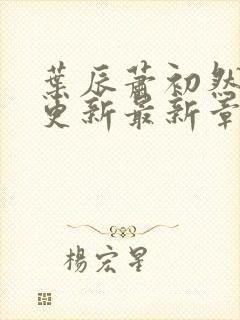 葉辰蕭初然
更新最新章
楊宏星